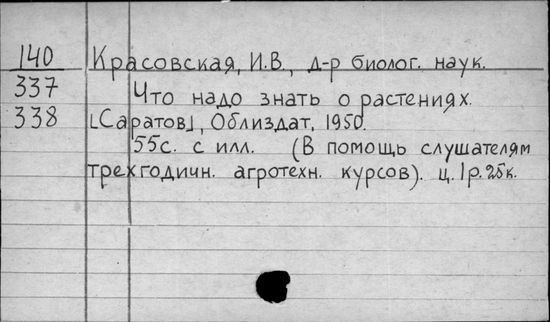 140 Красовская, И.В., д-р биолог. наук.
337 Что надо знать о растениях.
338 [Саратов], Облиздат, 1950.
55с. с илл. (В помощь слушателям
трехгодичн. агротехн. курсов). ц. 1р. 25к.